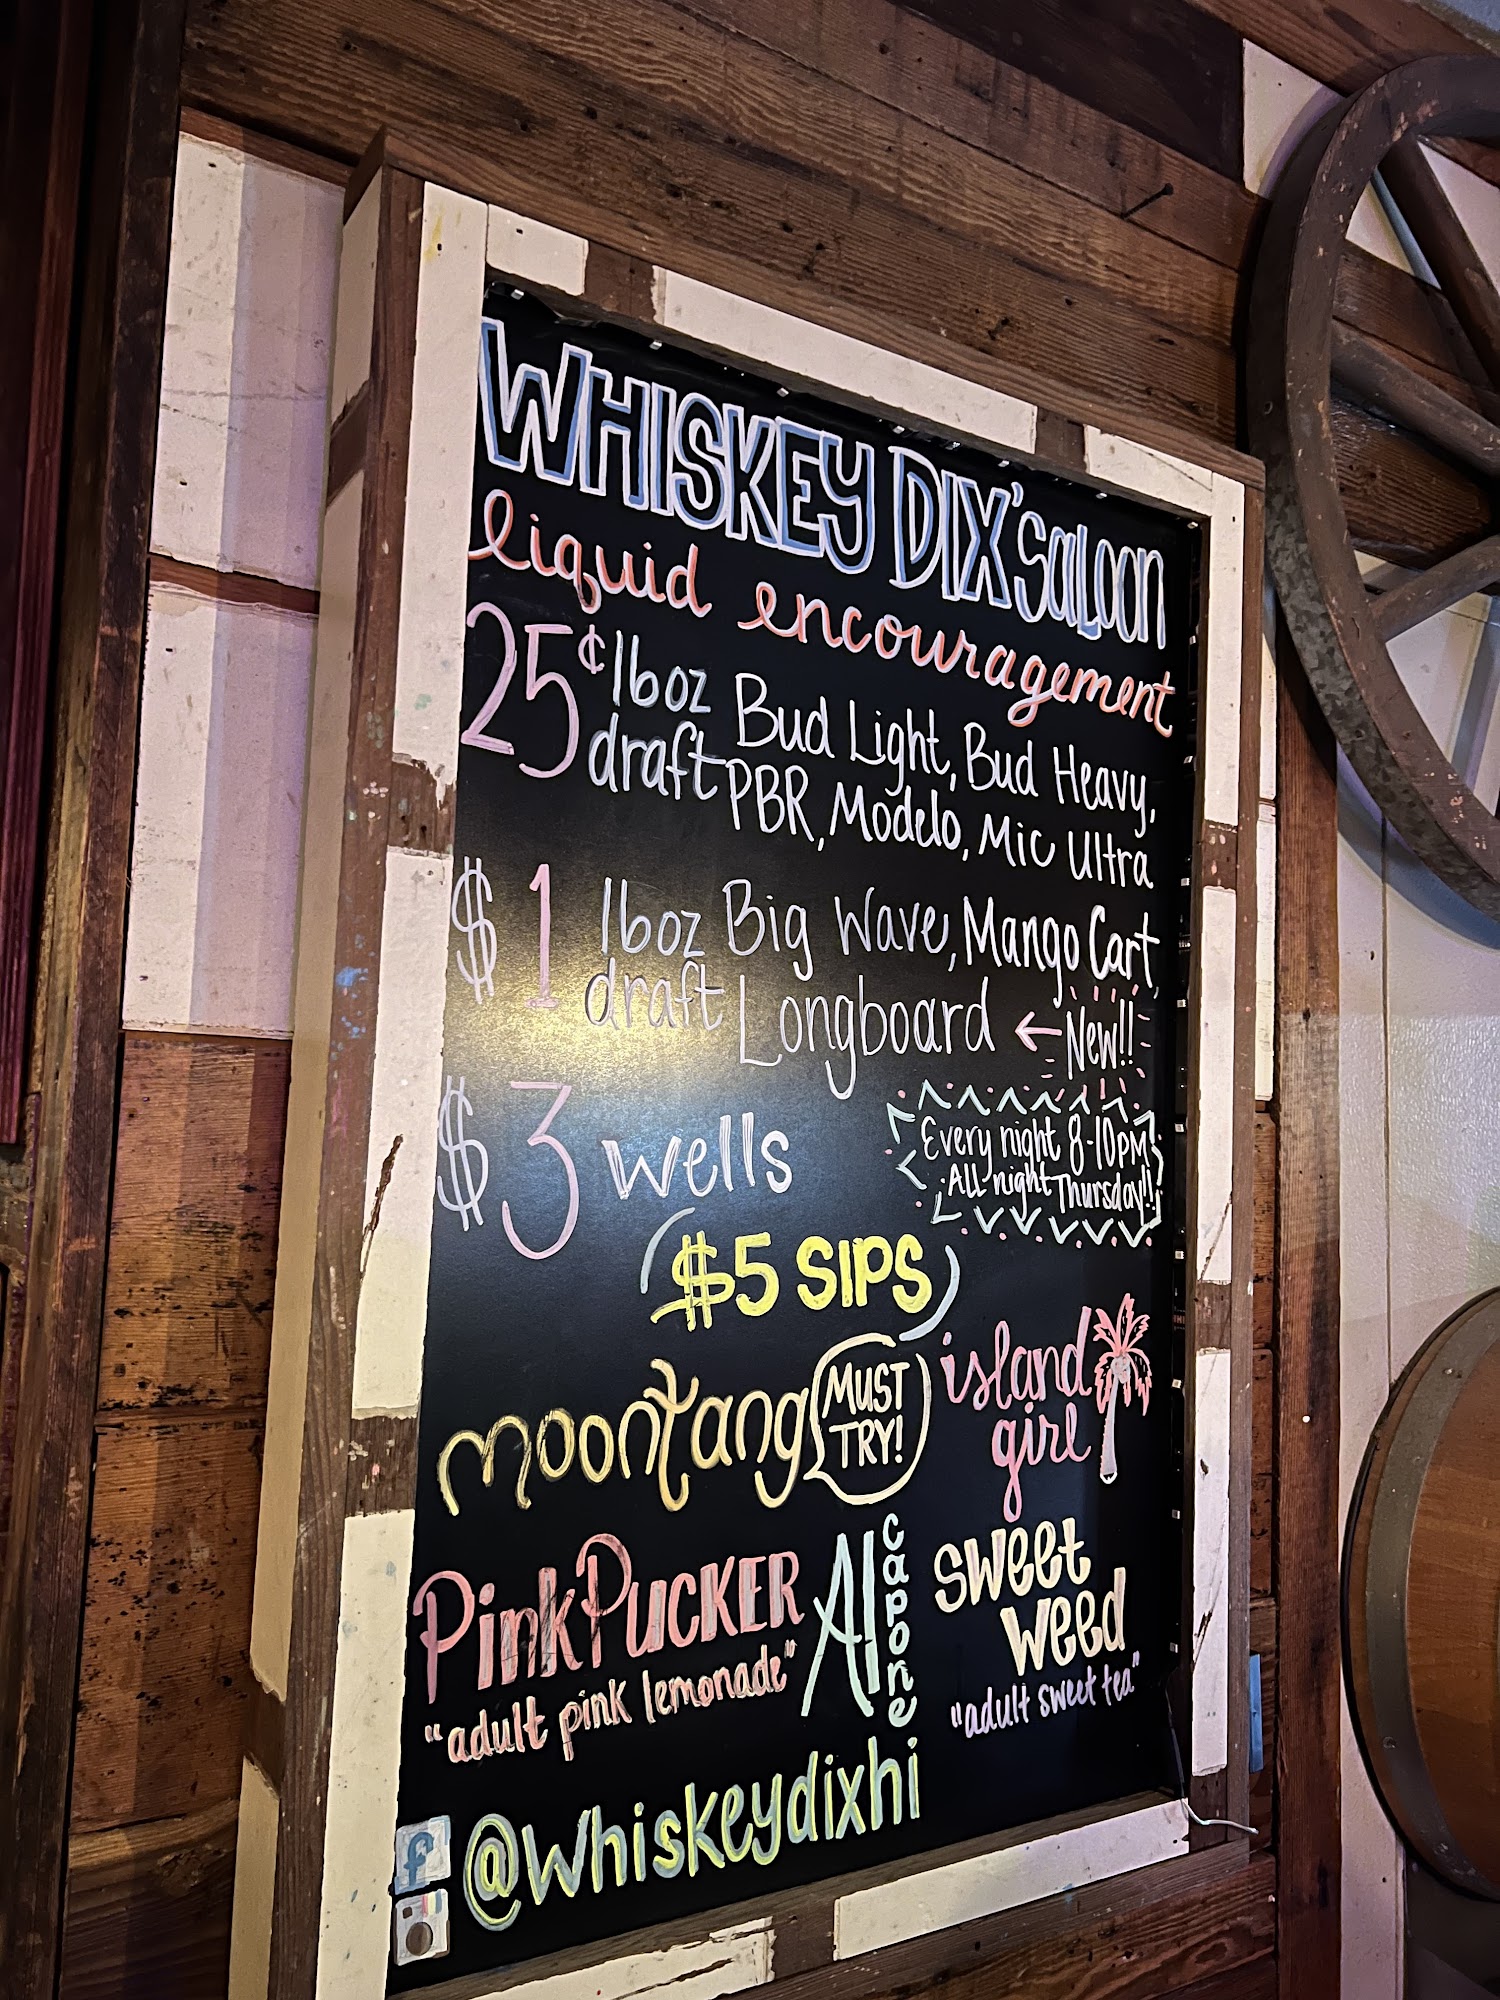 WHISKEY DIX' SALOON
liquid encouragement
25¢ 16oz draft Bud Light, Bud Heavy,
PBR, Modelo, Mic Ultra
$1 16oz draft Big Wave, Mango Cart,
Longboard ← New!!
$3 wells
Every night 8-10PM
All night Thursday!!
$5 SIPS
moontang
MUST
TRY!
island
girl
Pink Pucker
"adult pink lemonade"
Al Capone
sweet
weed
"adult sweet tea"
f
@whiskeydixhi